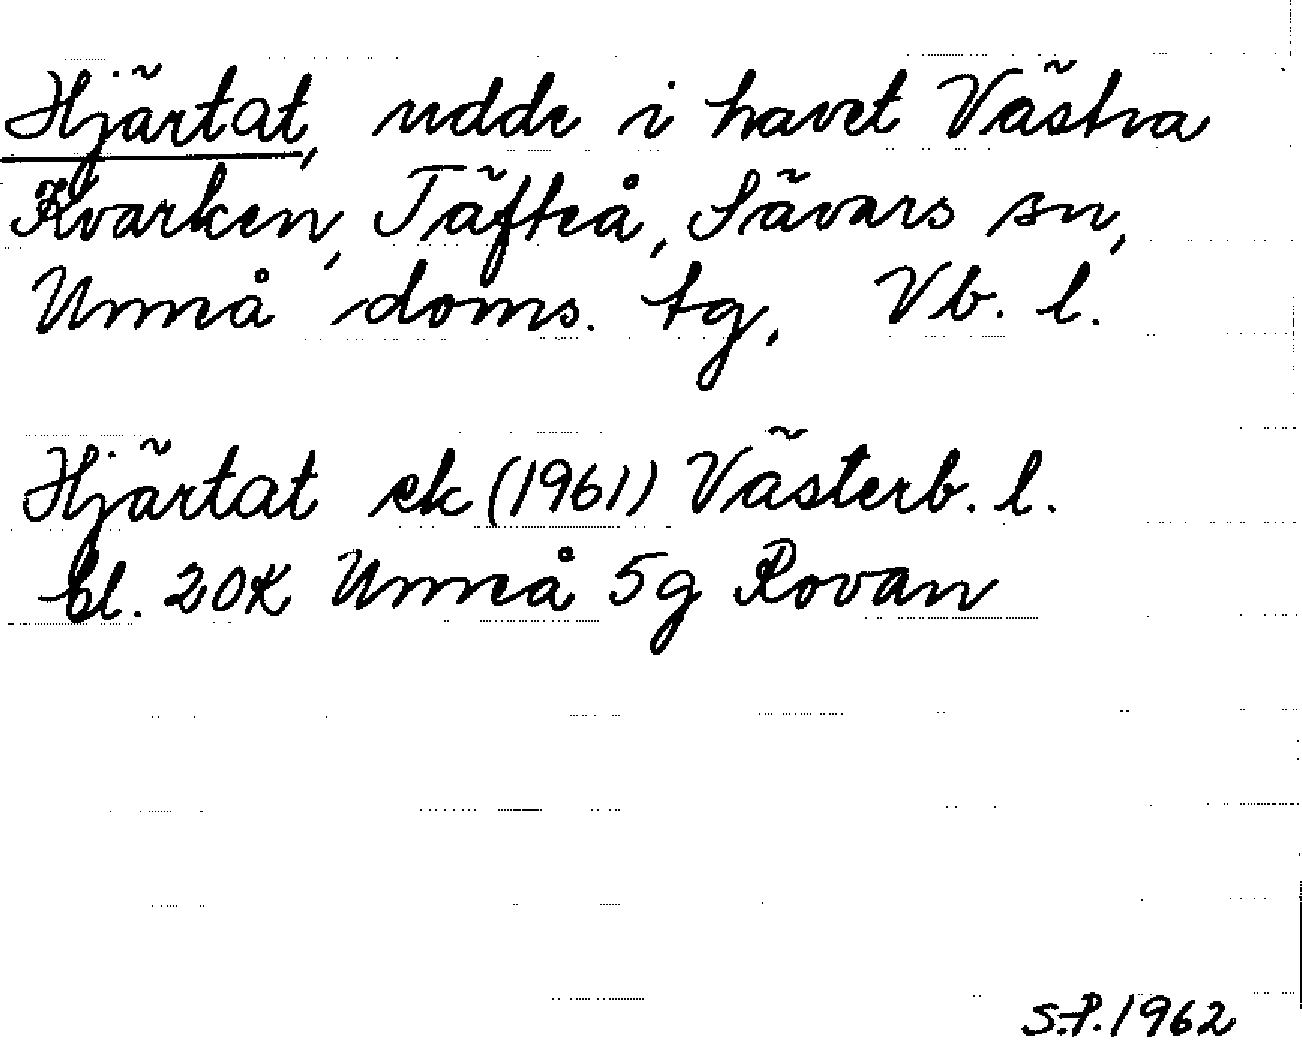 Hjärtat, udde i havet Västra
Kvarken, Täfteå, Sävars sn,
Umeå doms. tg, Vb. l.
Hjärtat ek (1961) Västerb. l.
bl. 20K Umeå 5g Rovan
S.P. 1962